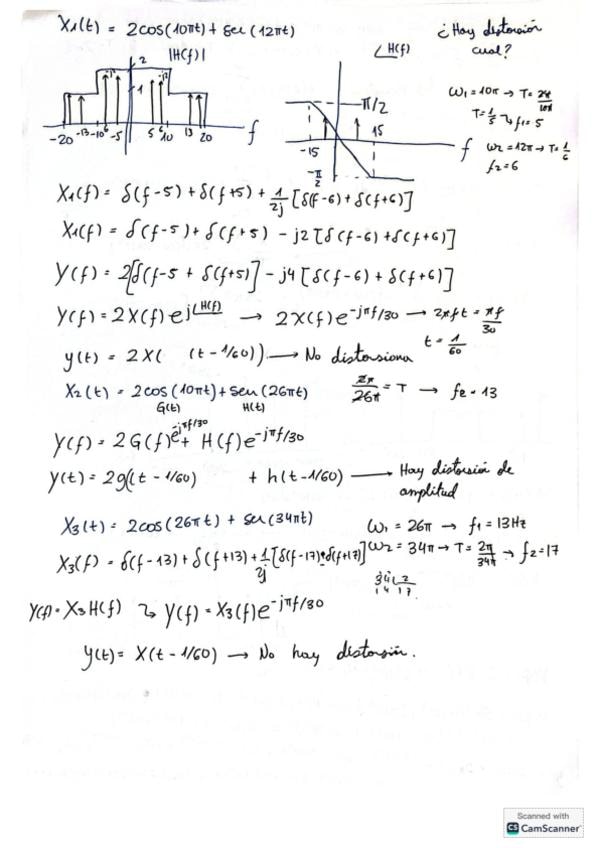 X₁(t) = 2cos(10πt) + sen(12πt)
¿Hay distorsión cual?
|H(f)|
2
1
-20 -13 -10 -6 -5 5 6 10 13 20 f
∠H(f)
π/2
-15 15 f
-π/2
ω₁ = 10π → T = 2π/10π
T = 1/5 ↳ f₁ = 5
ω₂ = 12π → T = 1/6
f₂ = 6
X₁(f) = δ(f-5) + δ(f+5) + 1/2j [δ(f-6) + δ(f+6)]
X₁(f) = δ(f-5) + δ(f+5) - j2 [δ(f-6) + δ(f+6)]
Y(f) = 2[δ(f-5 + δ(f+5)] - j4 [δ(f-6) + δ(f+6)]
Y(f) = 2X(f) e^j∠H(f) → 2X(f) e^-jπf/30 → 2πft = πf/30
t = 1/60
y(t) = 2X( (t - 1/60)) → No distorsiona
X₂(t) = 2cos(10πt) + sen(26πt) 2π/26π = T → f₂ = 13
G(t) H(t)
Y(f) = 2G(f) e^-jπf/30 + H(f) e^-jπf/30
y(t) = 2g((t - 1/60) + h(t - 1/60) → Hay distorsión de amplitud
X₃(t) = 2cos(26πt) + sen(34πt) ω₁ = 26π → f₁ = 13Hz
X₃(f) = δ(f-13) + δ(f+13) + 1/2j [δ(f-17) + δ(f+17)] ω₂ = 34π → T = 2π/34π → f₂ = 17
34 2
14 17
Y(f) = X₃H(f) ↳ Y(f) = X₃(f) e^-jπf/30
y(t) = X(t - 1/60) → No hay distorsión.
Scanned with
CS CamScanner